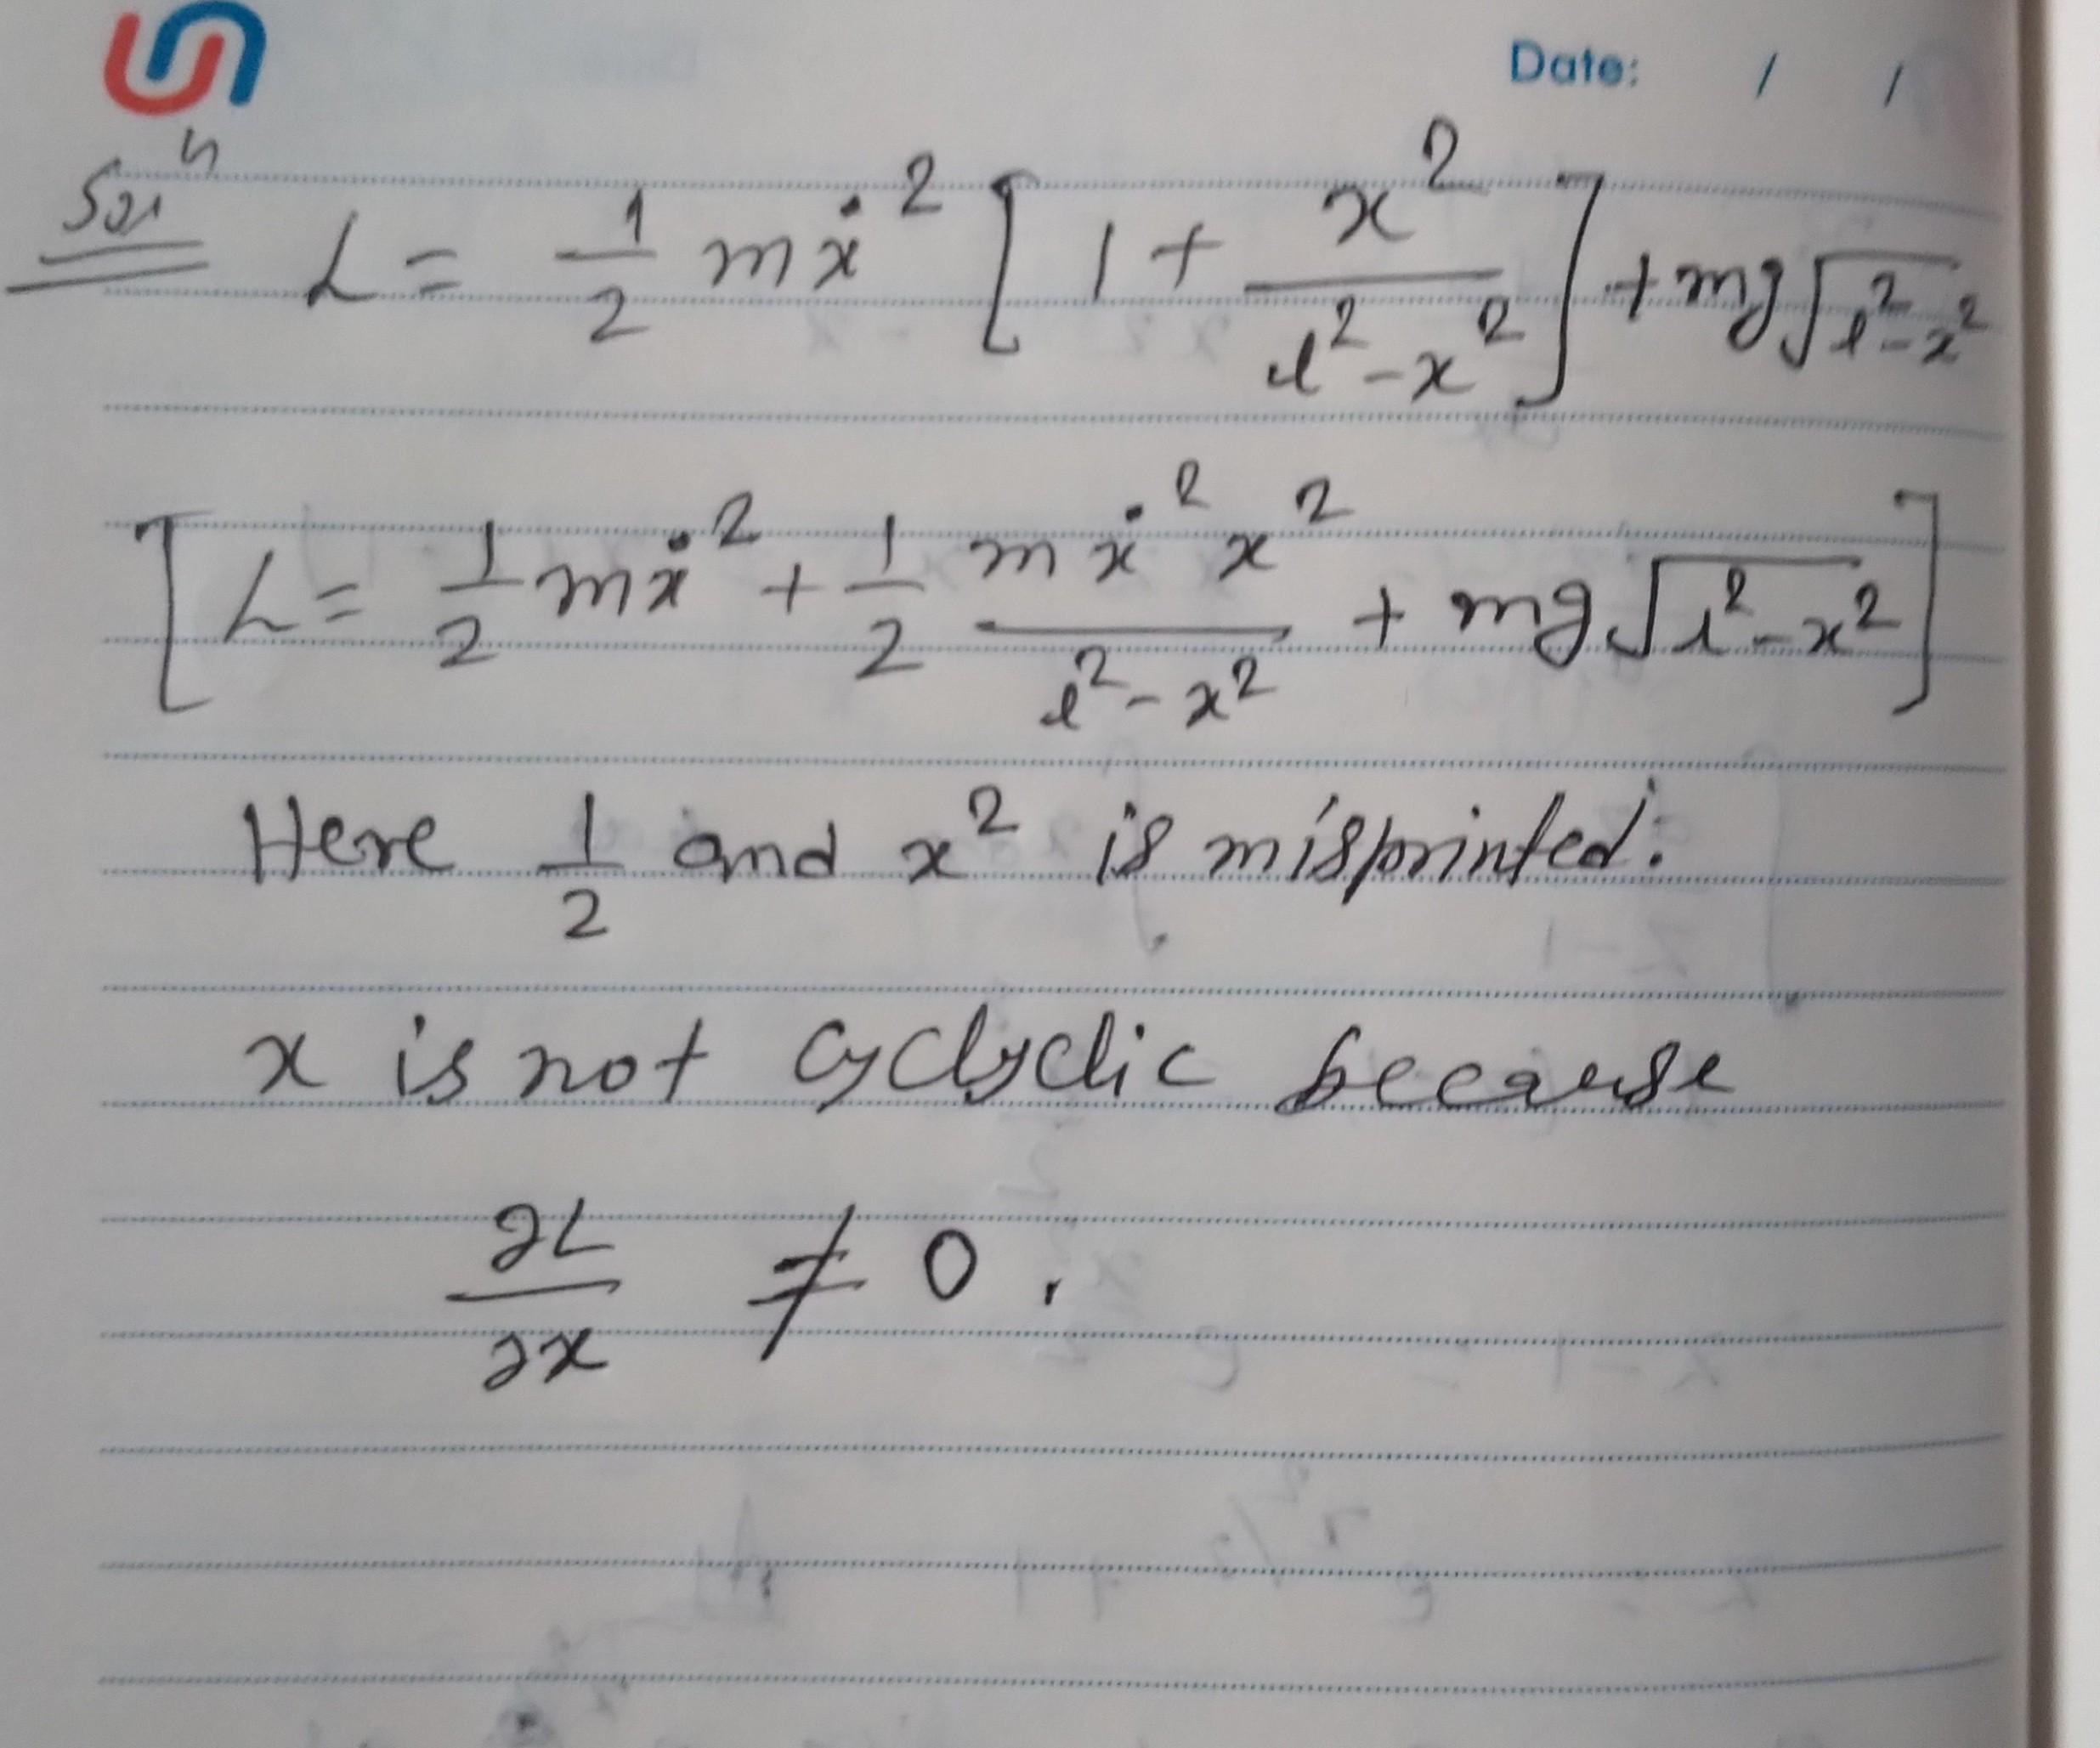 Date: / /
Solⁿ L = 1/2 mẋ² [1 + x²/(l²-x²)] + mg√(l²-x²)
[L = 1/2 mẋ² + 1/2 mẋ²x²/(l²-x²) + mg√(l²-x²)]
Here 1/2 and x² is misprinted.
x is not cyclyclic because
∂L/∂x ≠ 0.